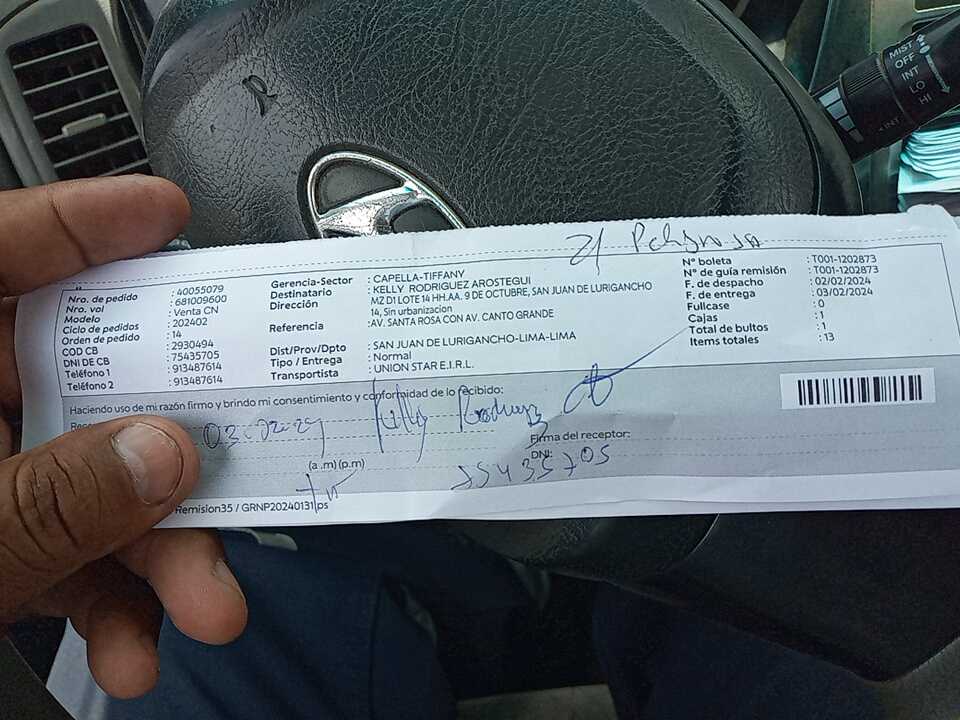 MIST
OFF
INT
LO
HI
<INT
Nro. de pedido : 40055079
Nro. vol : 681009600
Modelo : Venta CN
Ciclo de pedidos : 202402
Orden de pedido : 14
COD CB : 2930494
DNI DE CB : 75435705
Teléfono 1 : 913487614
Teléfono 2 : 913487614
Gerencia-Sector : CAPELLA-TIFFANY
Destinatario : KELLY RODRIGUEZ AROSTEGUI
Dirección : MZ D1 LOTE 14 HH.AA. 9 DE OCTUBRE, SAN JUAN DE LURIGANCHO
14, Sin urbanizacion
Referencia : AV. SANTA ROSA CON AV. CANTO GRANDE
Dist/Prov/Dpto : SAN JUAN DE LURIGANCHO-LIMA-LIMA
Tipo / Entrega : Normal
Transportista : UNION STAR E.I.R.L.
N° boleta : T001-1202873
N° de guía remisión : T001-1202873
F. de despacho : 02/02/2024
F. de entrega : 03/02/2024
Fullcase : 0
Cajas : 1
Total de bultos : 1
Items totales : 13
Haciendo uso de mi razón firmo y brindo mi consentimiento y conformidad de lo recibido:
03-02-24 Kelly Rodriguez
Firma del receptor:
(a .m) (p.m)
DNI: 75435705
Remision35 / GRNP20240131ps